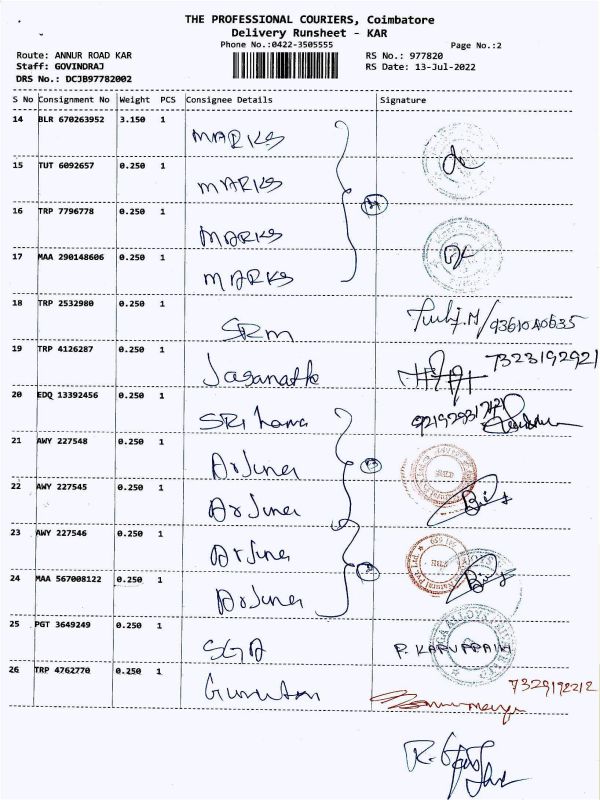 THE PROFESSIONAL COURIERS, Coimbatore
Delivery Runsheet - KAR
Phone No.:0422-3505555
Page No.:2
Route: ANNUR ROAD KAR
RS No.: 977820
Staff: GOVINDRAJ
RS Date: 13-Jul-2022
DRS No.: DCJB97782002
S No Consignment No Weight PCS Consignee Details Signature
14 BLR 670263952 3.150 1 MARKS
15 TUT 6092657 0.250 1 MARKS
16 TRP 7796778 0.250 1 MARKS
17 MAA 290148606 0.250 1 MARKS
18 TRP 2532980 0.250 1 SRM
19 TRP 4126287 0.250 1 7323192921
20 EDQ 13392456 0.250 1
21 AWY 227548 0.250 1 Arjuna
22 AWY 227545 0.250 1 Arjuna
23 AWY 227546 0.250 1 Arjuna
24 MAA 567008122 0.250 1 Arjuna
25 PGT 3649249 0.250 1 SGA P. KARUPPAIH
26 TRP 4762770 0.250 1